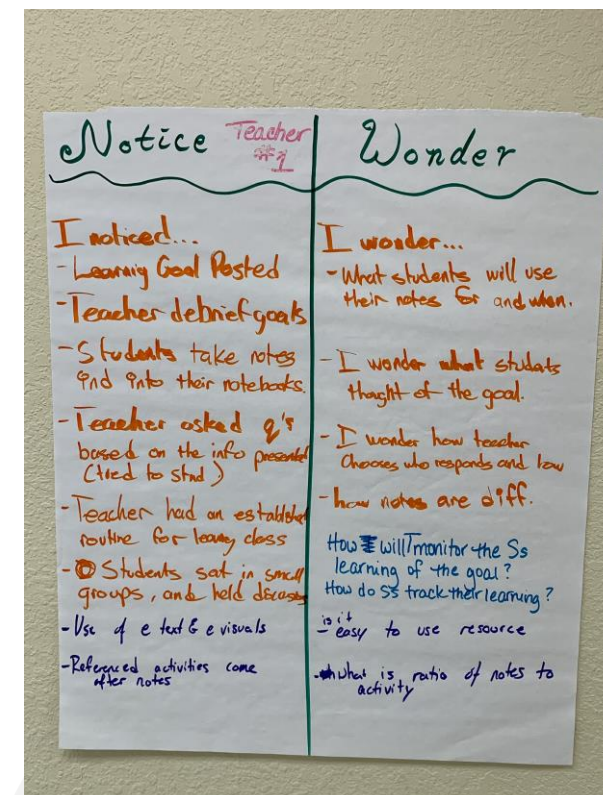 Notice Teacher
#1
I noticed...
- Learnig Goal Posted
- Teacher debrief goals
- Students take notes
ind into their notebooks.
- Teacher asked q's
based on the info presented
(tied to stnd)
- Teacher had an established
routine for leavig class
- Students sat in small
groups, and held
- Use of e text & e visuals
- Referenced activities come
after notes
Wonder
I wonder...
- What students will use
their notes for and when.
- I wonder what students
thought of the goal.
- I wonder how teacher
chooses who responds and how
- how notes are diff.
How will T monitor the Ss
learning of the goal?
How do Ss track their learning?
- is it easy to use resource
- what is ratio of notes to
activity